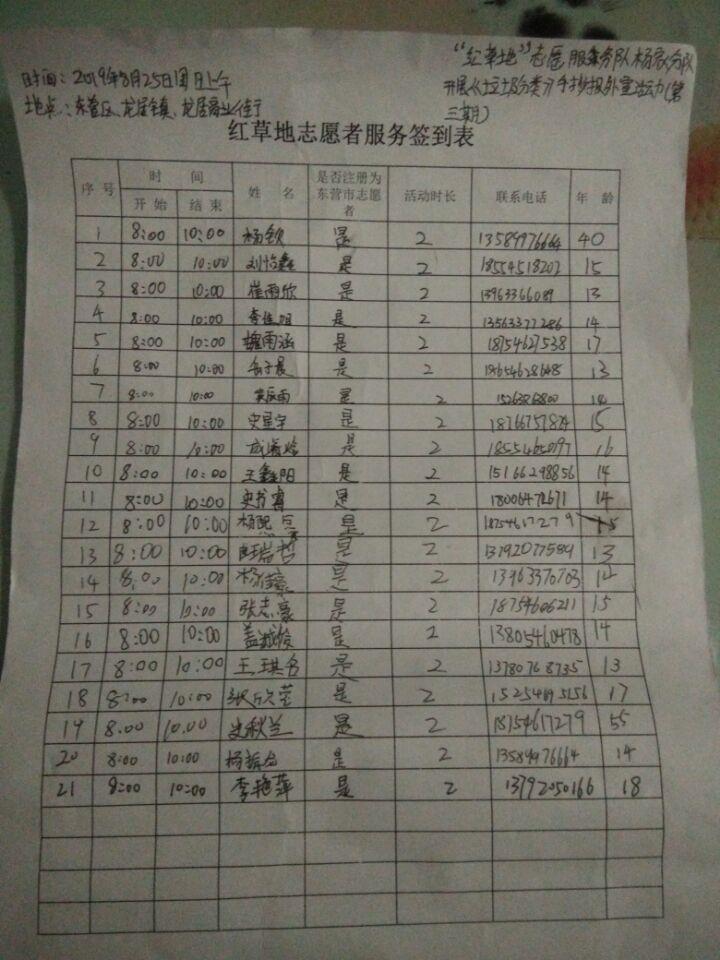 "红草地"志愿服务队杨家分队
时间：2019年8月25日周日上午
开展《垃圾分类》手抄报外宣活动(第
地点：东营区、龙居镇、龙居商业街
三期)
红草地志愿者服务签到表
序号 时间 姓名 是否注册为东营市志愿者 活动时长 联系电话 年龄
开始 结束
1 8:00 10:00 杨钦 是 2 13589976664 40
2 8:00 10:00 刘怡鑫 是 2 18554518202 15
3 8:00 10:00 崔雨欣 是 2 13963366089 13
4 8:00 10:00 李佳 是 2 13563377286 14
5 8:00 10:00 魏雨涵 是 2 18754627538 17
6 8:00 10:00 子晨 是 2 13
7 8:00 10:00 雨 是 2 14
8 8:00 10:00 史星宇 是 2 18766757824 15
9 8:00 10:00 成 是 2 18554605097 16
10 8:00 10:00 王鑫阳 是 2 15166298856 14
11 8:00 10:00 史书睿 是 2 18006472671 14
12 8:00 10:00 杨 是 2 18754617279 15
13 8:00 10:00 瑞哲 是 2 13792077584 13
14 8:00 10:00 杨 是 2 13963370703 12
15 8:00 10:00 张志豪 是 2 18754606211 15
16 8:00 10:00 盖俊 是 2 13805460478 14
17 8:00 10:00 王琪名 是 2 13780768735 13
18 8:00 10:00 张欣莹 是 2 15254695156 17
19 8:00 10:00 史秋兰 是 2 18754617279 55
20 8:00 10:00 杨振 是 2 13589976664 14
21 8:00 10:00 李艳萍 是 2 13792050166 18